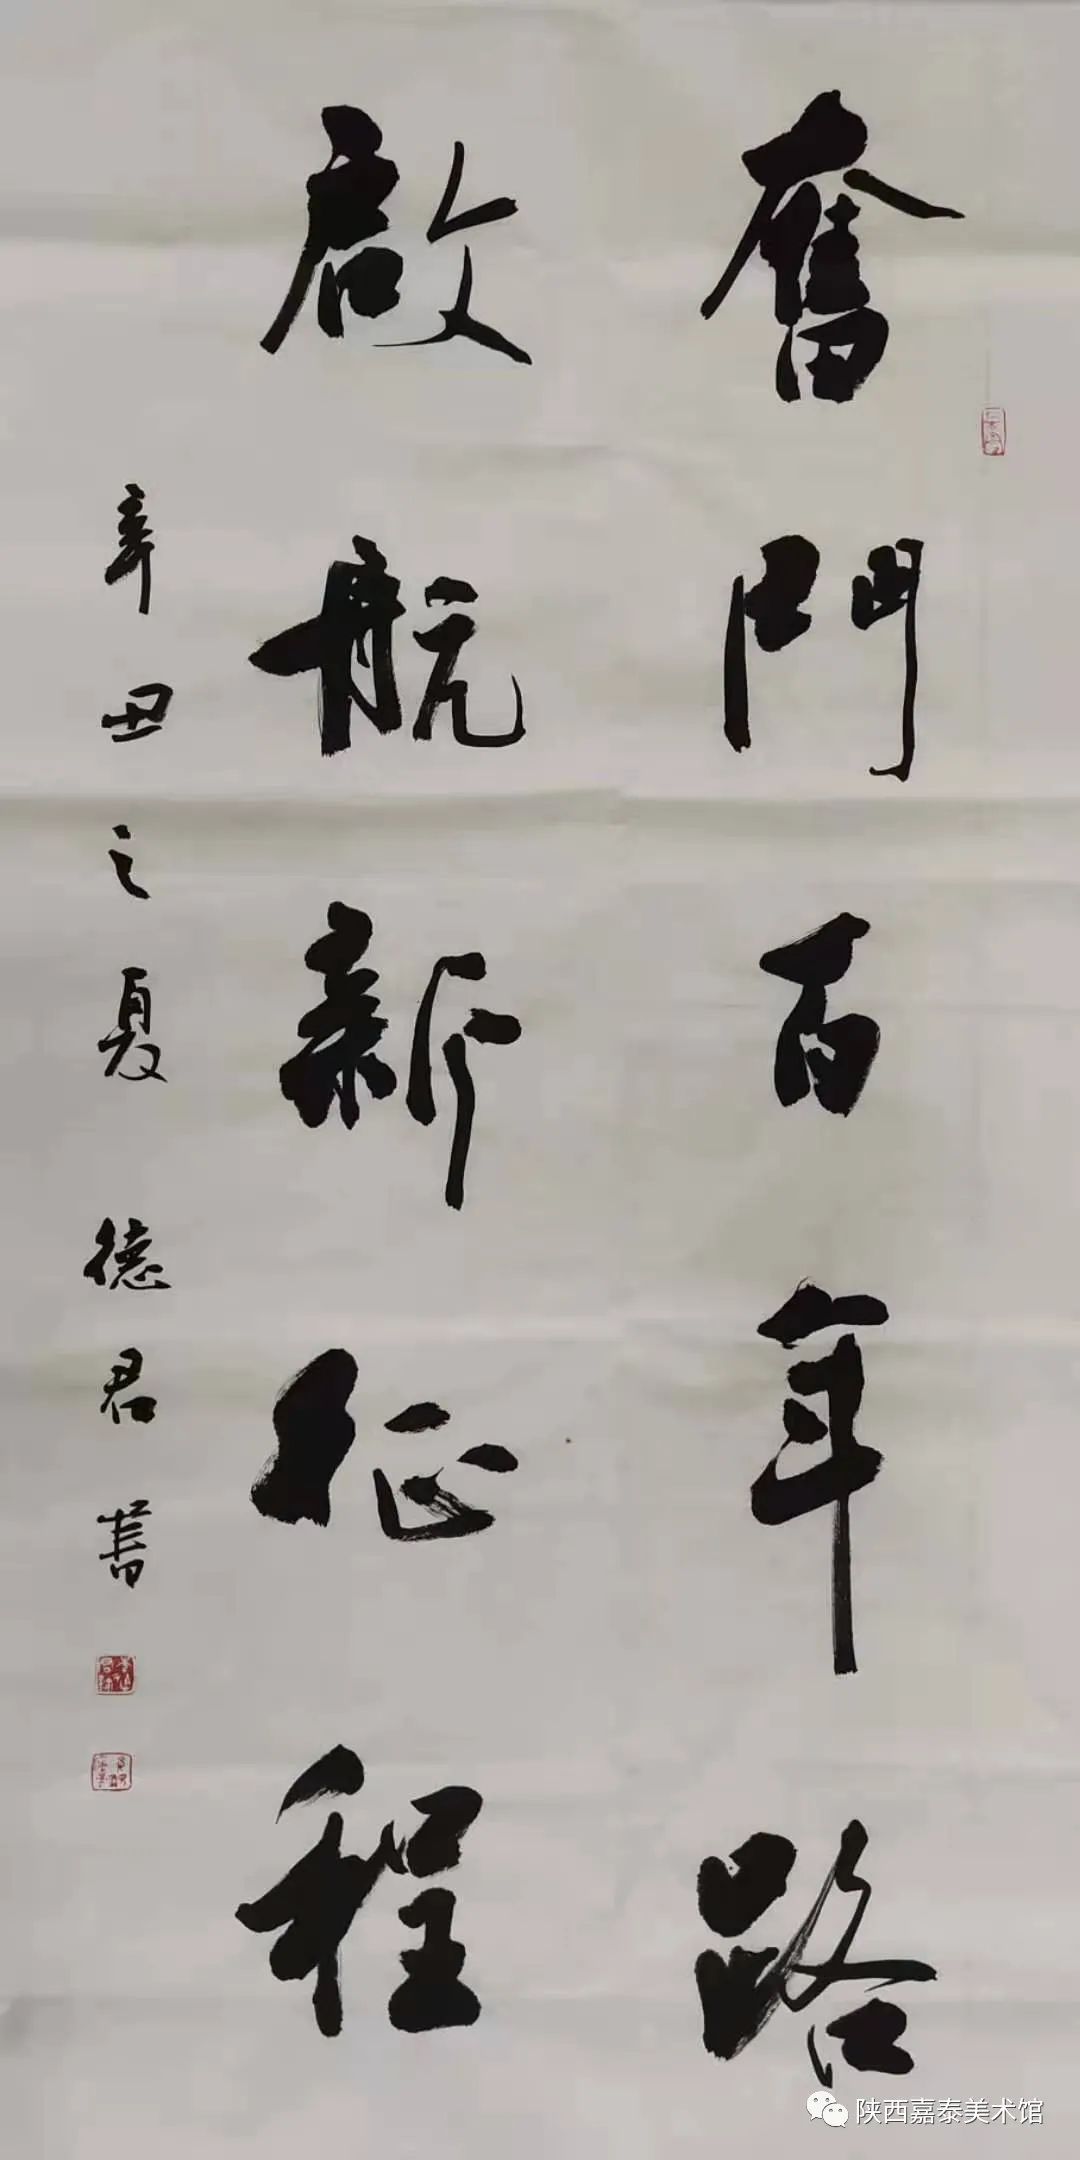 奮鬥百年路
啟航新征程
辛丑之夏 德君書
陕西嘉泰美术馆